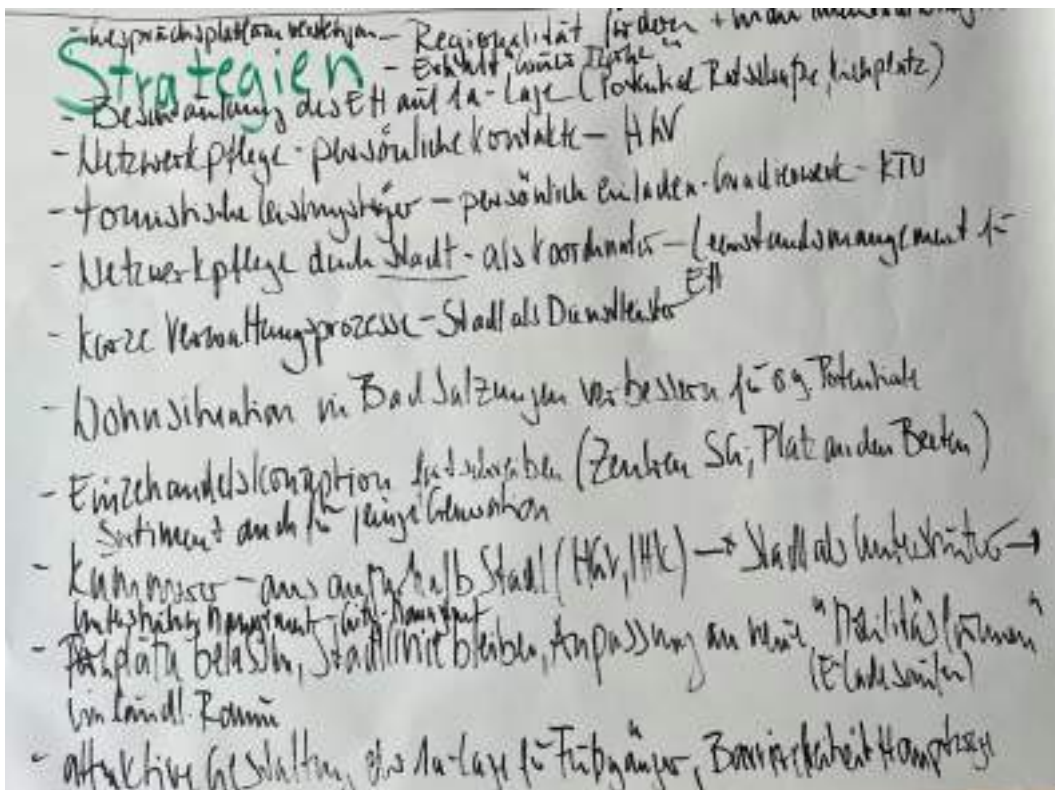 - Gesprächsplattform verstetigen - Regionalität fördern +
Strategien - Erhalt "
- Beschränkung des EH auf 1a-Lage (Potential Ratsstraße, Kirchplatz)
- Netzwerkpflege - persönliche Kontakte - HGV
- touristische Leistungsträger - persönlich einladen - Gradierwerk - KTU
- Netzwerkpflege durch Stadt - als Koordinator - Leerstandsmanagement für
EH
- kurze Verwaltungsprozesse - Stadt als Dienstleister
- Wohnsituation in Bad Salzungen verbessern für o.g. Potentiale
- Einzelhandelskonzeption fortschreiben (Zentren Platz an den Beeten)
Sortiment auch für junge Generation
- Kümmerer - aus außerhalb Stadt (HGV, IHK) → Stadt als Unterstützer →
Management - City-Management
- Parkplätze belassen, Stadtlinie bleiben, Anpassung an neue "Mobilitätsformen"
(E-Ladesäulen)
im ländl. Raum
- attraktive Gestaltung der 1a-Lage für Fußgänger, Barrierefreiheit